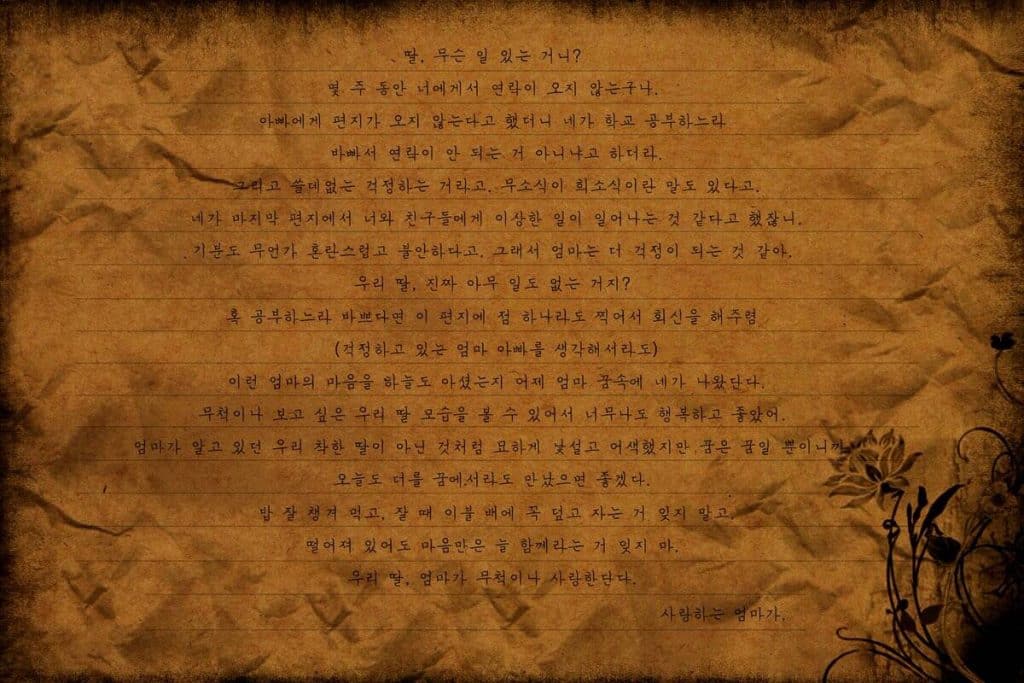 딸, 무슨 일 있는 거니?
몇 주 동안 너에게서 연락이 오지 않는구나.
아빠에게 편지가 오지 않는다고 했더니 네가 학교 공부하느라
바빠서 연락이 안 되는 거 아니냐고 하더라.
그리고 쓸데없는 걱정하는 거라고. 무소식이 희소식이란 말도 있다고.
네가 마지막 편지에서 너와 친구들에게 이상한 일이 일어나는 것 같다고 했잖니.
기분도 무언가 혼란스럽고 불안하다고. 그래서 엄마는 더 걱정이 되는 것 같아.
우리 딸, 진짜 아무 일도 없는 거지?
혹 공부하느라 바쁘다면 이 편지에 점 하나라도 찍어서 회신을 해주렴
(걱정하고 있는 엄마 아빠를 생각해서라도)
이런 엄마의 마음을 하늘도 아셨는지 어제 엄마 꿈속에 네가 나왔단다.
무척이나 보고 싶은 우리 딸 모습을 볼 수 있어서 너무나도 행복하고 좋았어.
엄마가 알고 있던 우리 착한 딸이 아닌 것처럼 묘하게 낯설고 어색했지만 꿈은 꿈일 뿐이니까
오늘도 너를 꿈에서라도 만났으면 좋겠다.
밥 잘 챙겨 먹고, 잘 때 이불 배에 꼭 덮고 자는 거 잊지 말고.
떨어져 있어도 마음만은 늘 함께라는 거 잊지 마.
우리 딸, 엄마가 무척이나 사랑한단다.
사랑하는 엄마가.